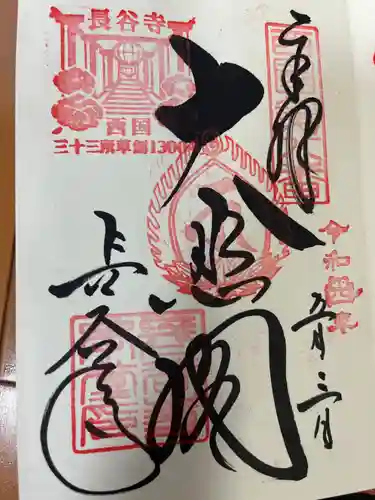 奉拝
令和四年
五月三日
大悲閣
長谷寺
長谷寺
西国
三十三所草創1300年